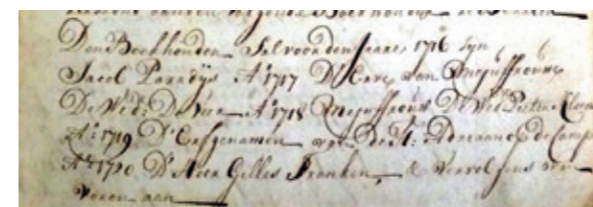 Den Boekhouder Sal voor den Jaare 1716 syn
Jacob Paradys A° 1717 D' Erve van Mejuffrouw
De Wed: De Vier A° 1718 Mejuffrouw De Wed Pieter
A° 1719 D' Erfgenamen van de Hr: Adriaan de Camp
A° 1720 D' Heer Gilles Franken & vervolgens van
Voren aan